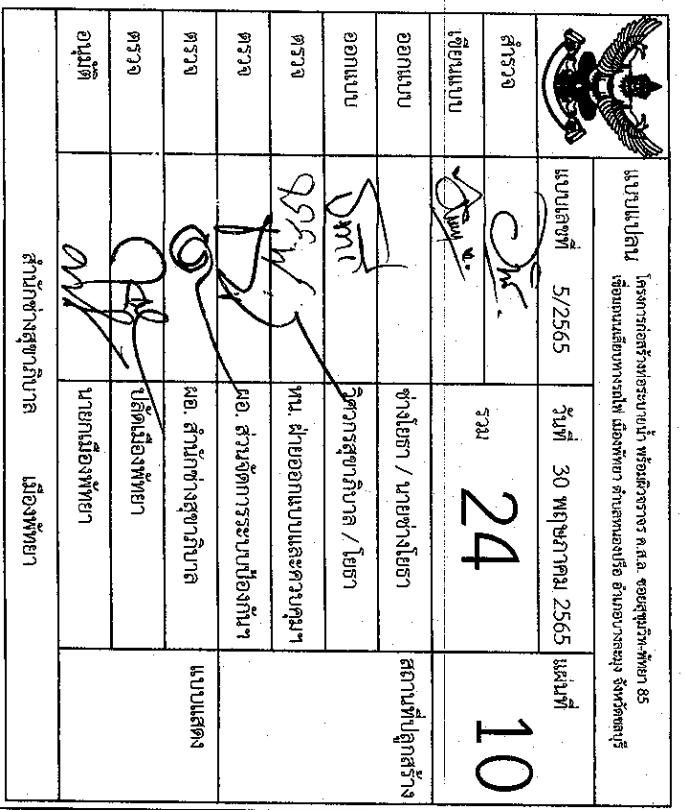 แบบแปลน โครงการก่อสร้างท่อระบายน้ำ พร้อมผิวจราจร ค.ส.ล. ซอยสุขุมวิท-พัทยา 85
เชื่อมถนนเลียบทางรถไฟ เมืองพัทยา ตำบลหนองปรือ อำเภอบางละมุง จังหวัดชลบุรี
แบบเลขที่ 5/2565 วันที่ 30 พฤษภาคม 2565 แผ่นที่
สำรวจ รวม 24 10
เขียนแบบ
ออกแบบ ช่างโยธา / นายช่างโยธา สถานที่ปลูกสร้าง
ออกแบบ วิศวกรสุขาภิบาล / โยธา
ตรวจ หน. ฝ่ายออกแบบและควบคุมฯ
ตรวจ ผอ. ส่วนจัดการระบบป้องกันฯ
ตรวจ ผอ. สำนักช่างสุขาภิบาล แบบแสดง
ตรวจ ปลัดเมืองพัทยา
อนุมัติ นายกเมืองพัทยา
สำนักช่างสุขาภิบาล เมืองพัทยา